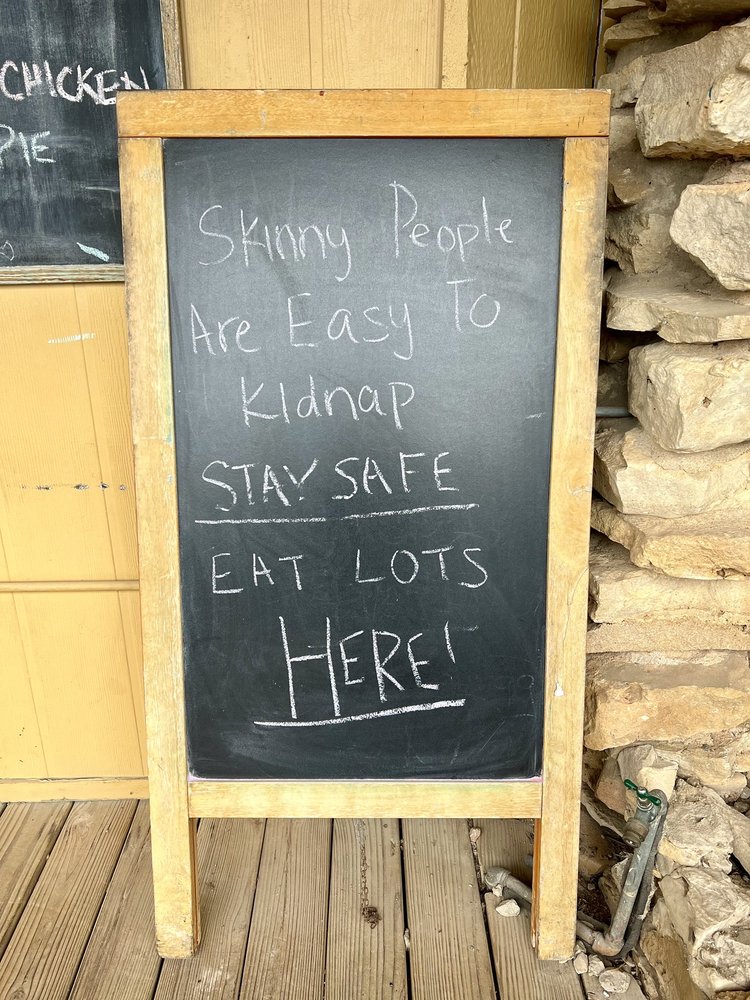 CHICKEN
PIE
Skinny People
Are Easy To
Kidnap
STAY SAFE
EAT LOTS
HERE!